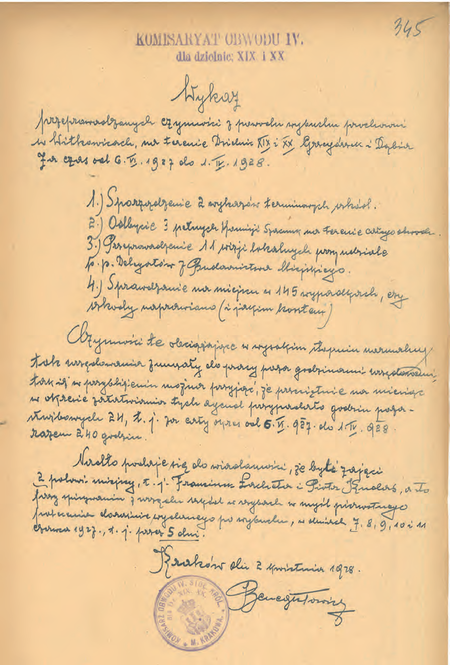 345
KOMISARYAT OBWODU IV.
dla dzielnic: XIX i XX
Wykaz
przeprowadzonych czynności z powodu wybuchu prochowni
w Witkowicach, na terenie Dzielnic XIX i XX Grzegórzek i Dąbia
za czas od 6. VI. 1927 do 1. IV. 1928.
1.) Sporządzenie 2 wykazów terminowych szkód.
2.) Odbycie 3 pełnych Komisji Szacunk. na terenie całego obwodu.
3.) Przeprowadzenie 11 wizji lokalnych przy udziale
p.p. Delegatów z Budownictwa Miejskiego.
4.) Sprawdzanie na miejscu w 145 wypadkach, czy
szkody naprawiono (i jakim kosztem)
Czynności te obciążając w wysokim stopniu normalny
tok urzędowania zmuszały do pracy poza godzinami
tak iż w przybliżeniu można przyjąć, że przeciętnie na miesiąc
w okresie załatwiania tych przypadało godzin poza-
służbowych 24, t. j. za cały okres od 6. VI. 1927 do 1. IV. 1928
razem 240 godzin.
Nadto podaje się do wiadomości, że byli zajęci
2 polowi miejscy, t. j. Franciszek Lachuta i Piotr, a to
przy spisywaniu z urzędu szkód w szybach w myśl pierwotnego
polecenia doraźnie wydanego po wybuchu, w dniach 7, 8, 9, 10 i 11
czerwca 1927, t. j. przez 5 dni.
Kraków dn. 2 kwietnia 1928.
KOMISARZ OBWODU IV. STOŁ. KRÓL.
M. KRAKOWA